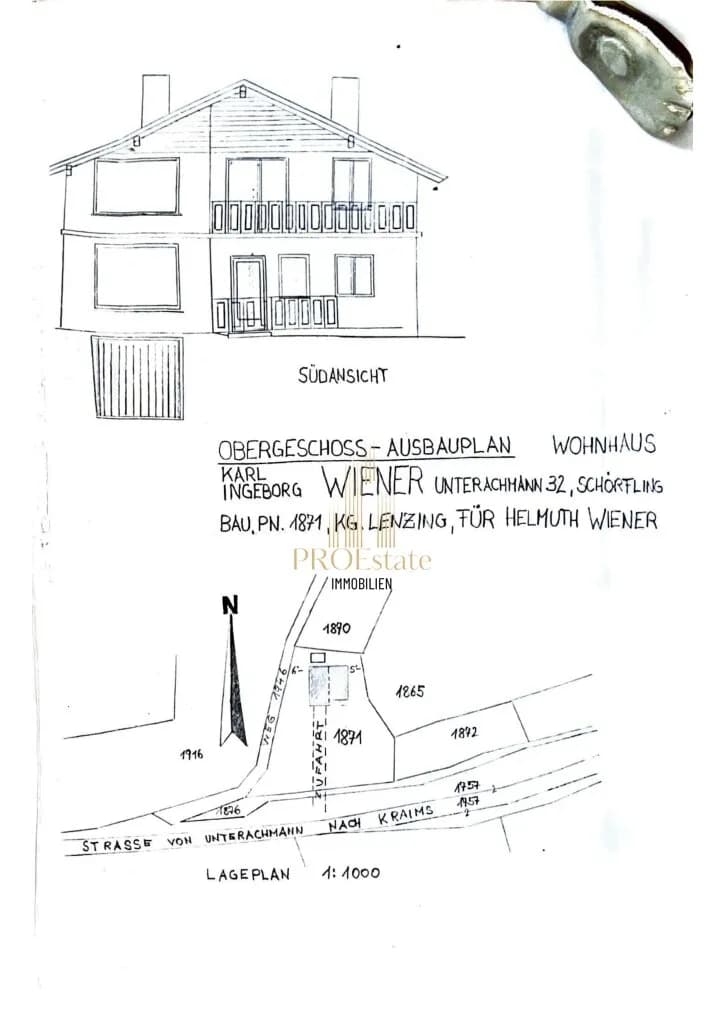 SÜDANSICHT
OBERGESCHOSS - AUSBAUPLAN WOHNHAUS
KARL
INGEBORG WIENER UNTERACHMANN 32, SCHÖRFLING
BAU. PN. 1871, KG. LENZING, FÜR HELMUTH WIENER
PROEstate
IMMOBILIEN
N
1890
6- 5-
1865
WEG 1946
ZUFAHRT
1871
1872
1916
1876
1757
2
1457
2
STRASSE VON UNTERACHMANN NACH KRAIMS
LAGEPLAN 1:1000